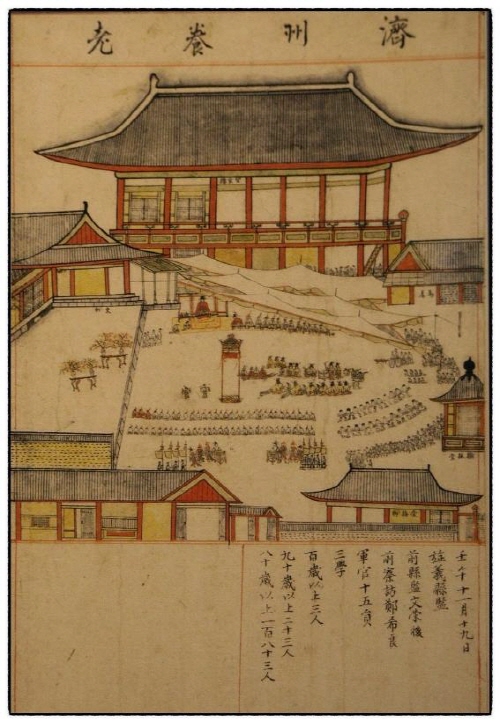 濟州養老
望京樓
壬午十一月十九日
旌義縣監
前縣監文榮後
前察訪鄭希良
軍官十五員
三學
百歲以上三人
九十歲以上二十三人
八十歲以上一百八十三人